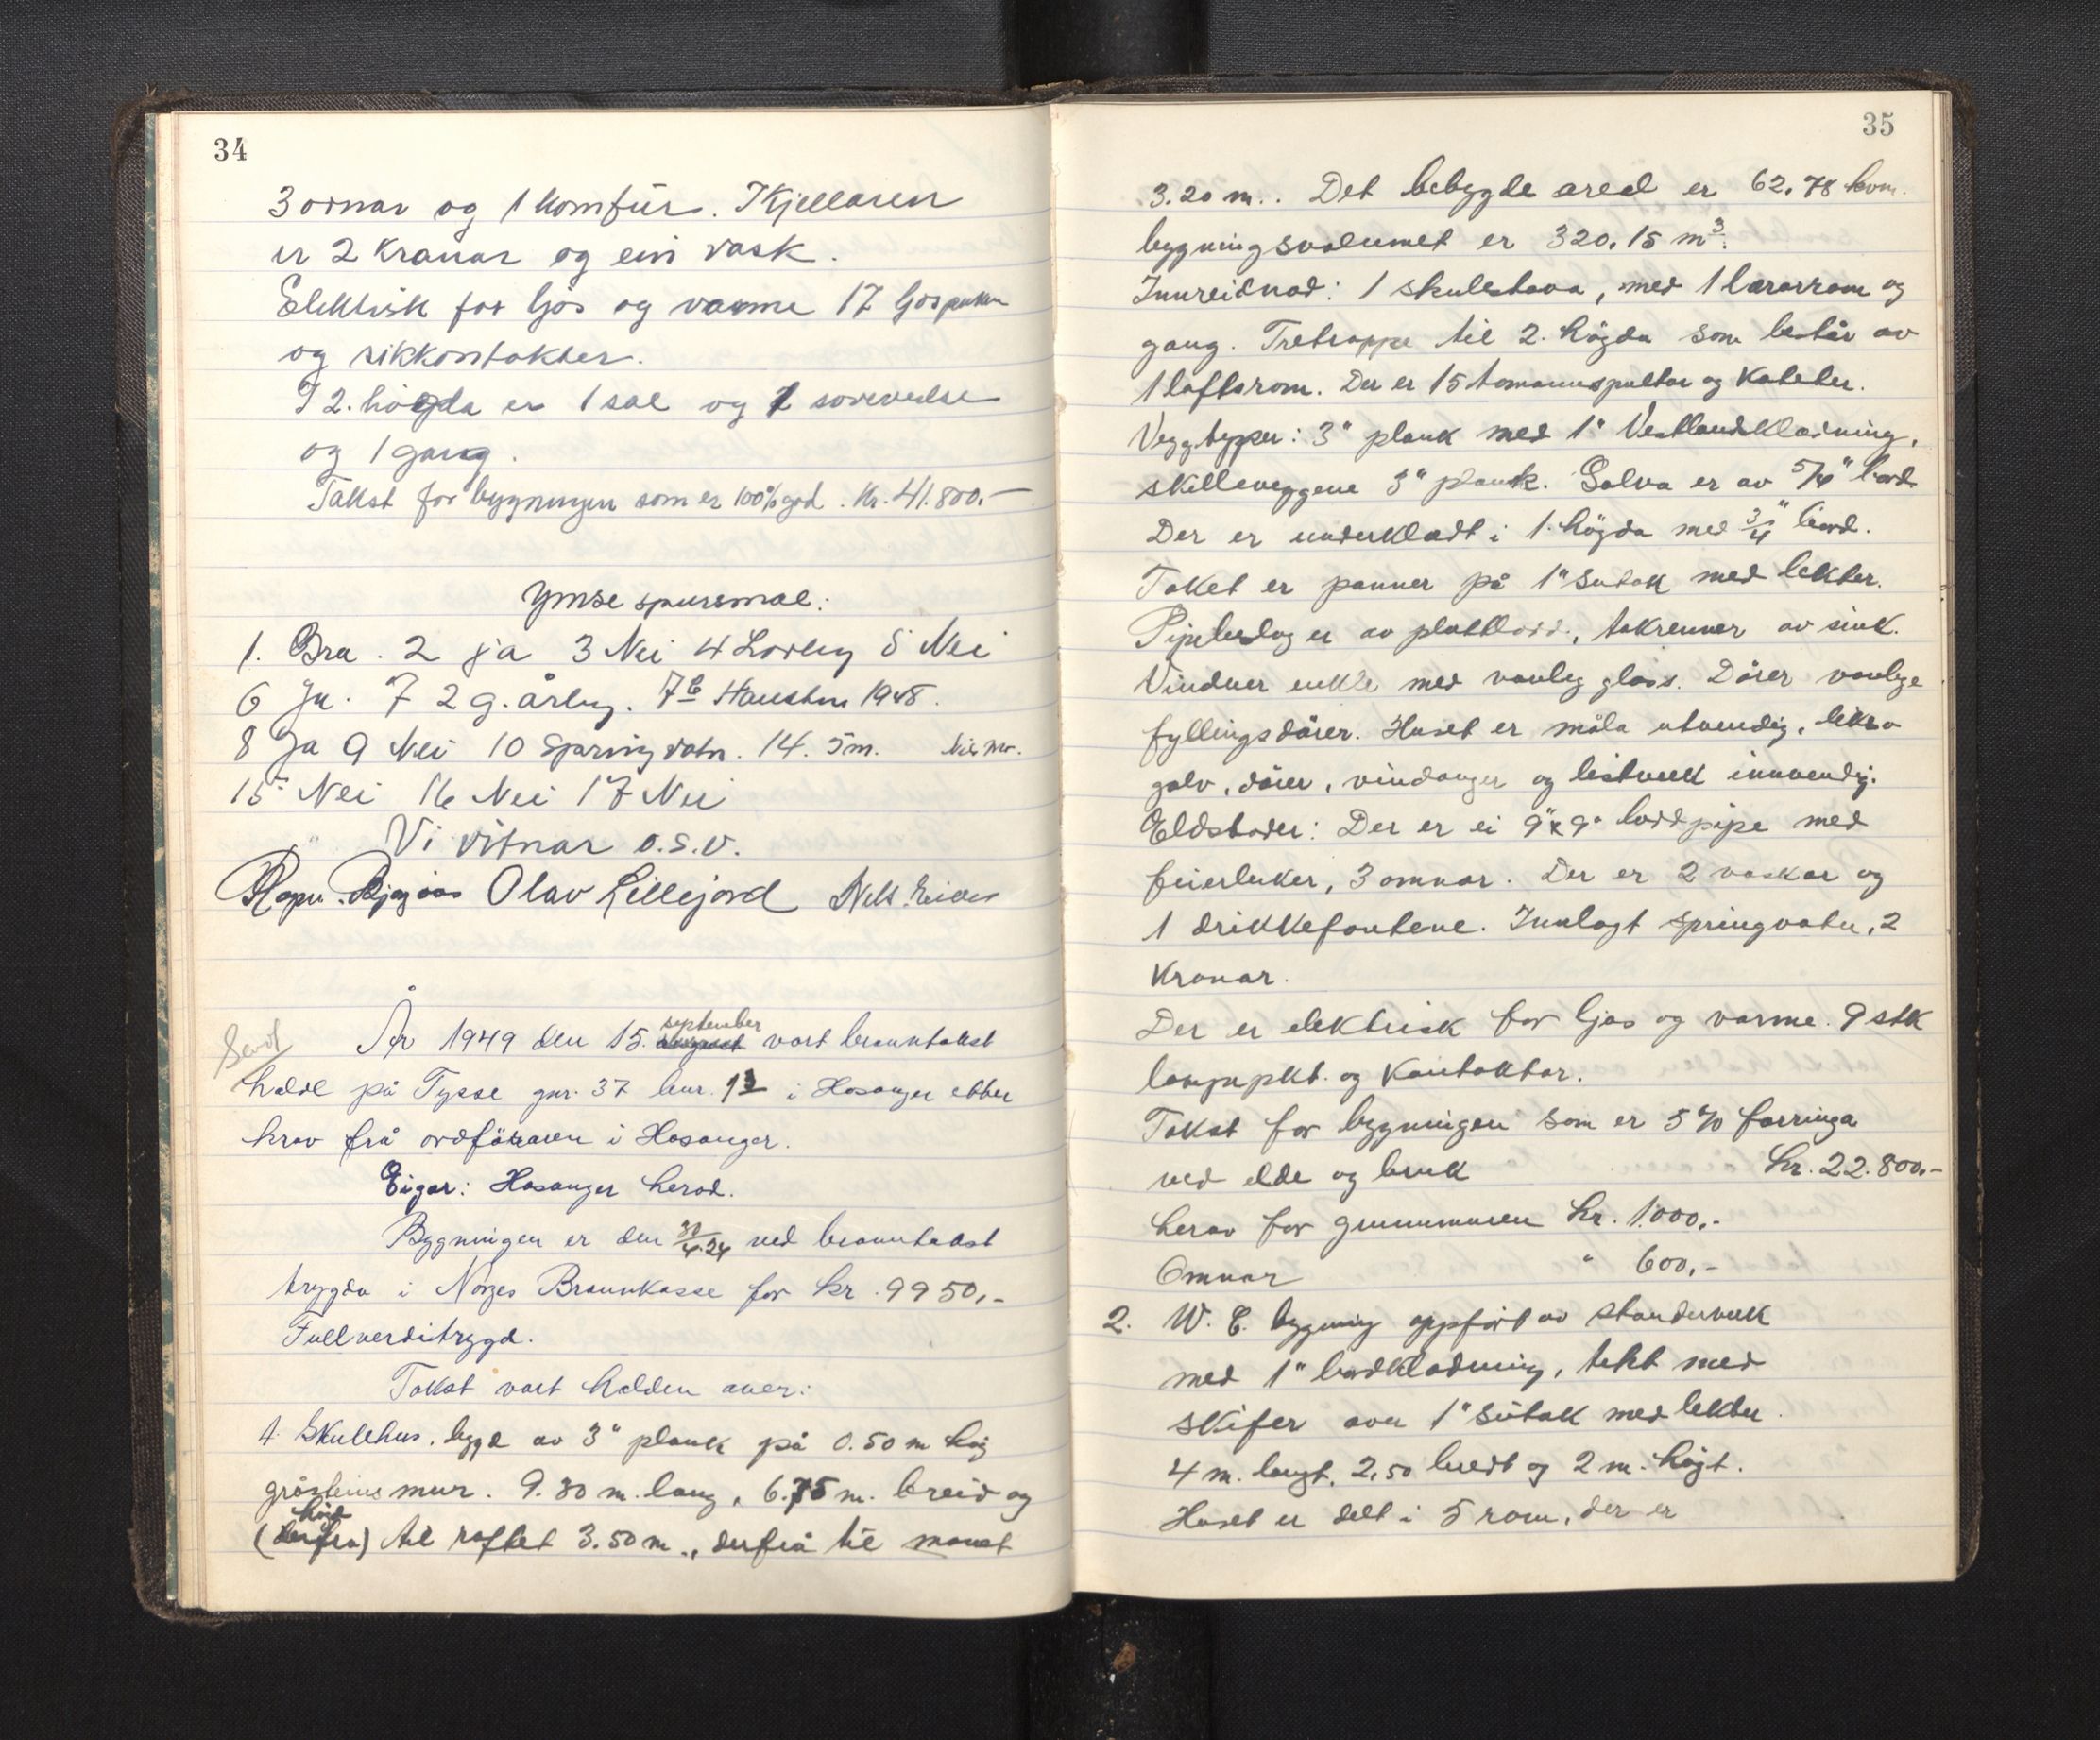 34
3 ovnar og 1 komfür. I Kjellaren
er 2 Kranar og ein vask.
Elektrisk for ljos og varme 17 ljospunkter
og sikkontakter.
I 2. høgda er 1 sal og 1 soveverelse
og 1 gang.
Takst for bygningen som er 100% god. Kr. 41.800.-
Ymse spursmal:
1. Bra. 2 ja 3 Nei 4 Lovleg 5 Nei
6 Ja. 7 2 g. årleg. 7b Hausten 1948.
8 Ja 9 Nei 10 Spring vatn. 14. 5 m.
15 Nei 16 Nei 17 Nei
Vi vitnar o.s.v.
Olav Lillejord Nils Eides
Send
september
År 1949 den 15. august vart branntakst
halde på Tysse gnr. 37 bnr. 13 i Hosanger etter
krav frå ordføraren i Hosanger.
Eigar: Hosanger herad.
Bygningen er den 30/4.24 ved branntakst
trygda i Norges Brannkasse for kr. 9950,-
Fullverditrygd.
Takst vart halden over:
1. Skulehus, bygd av 3" plank på 0.50 m høg
gråsteinsmur. 9.30 m. lang, 6.75 m. breid og
høid
(derfra) til raftet 3.50 m., derfrå til mønet
35
3.20 m.. Det bebygde areal er 62,78 kvm.
bygningsvolumet er 320,15 m3.
Innreidnad: 1 skulestova, med 1 lærarrom og
gang. Tretrappe til 2. høgda som består av
1 loftsrom. Der er 15 tomannspultar og Kateter.
Veggtyper: 3" plank med 1" Vestlandsklædning,
skilleveggene 3" plank. Golva er av 5/4" bord.
Der er underklædt i 1. høgda med 3/4" bord.
Taket er panner på 1" sutak med lekter.
Pipebeslag er av plett, takrenner av sink.
Vinduer enkle med vanleg glass. Dører vanlege
fyllingsdører. Huset er måla utvendig, likeo
golv, dører, vindauger og listverk innvendig.
Eldstader: Der er ei 9"x9" loddpipe med
feierluker, 3 omnar. Der er 2 vaskar og
1 drikkefontene. Innlagt springvatn, 2
Kranar.
Der er elektrisk for ljos og varme. 9 stk
lampepkt. og Kontaktar.
Takst for bygningen som er 5% forringa
ved elde og bruk kr. 22.800,-
herav for grunnmuren kr. 1.000,-
Omnar " 600,-
2. W. C. bygning oppført av standerverk
med 1" bordklædning, tekt med
skifer over 1" sutak med lekter.
4 m. langt, 2,50 bredt og 2 m. høgt.
Huset er delt i 5 rom, der er